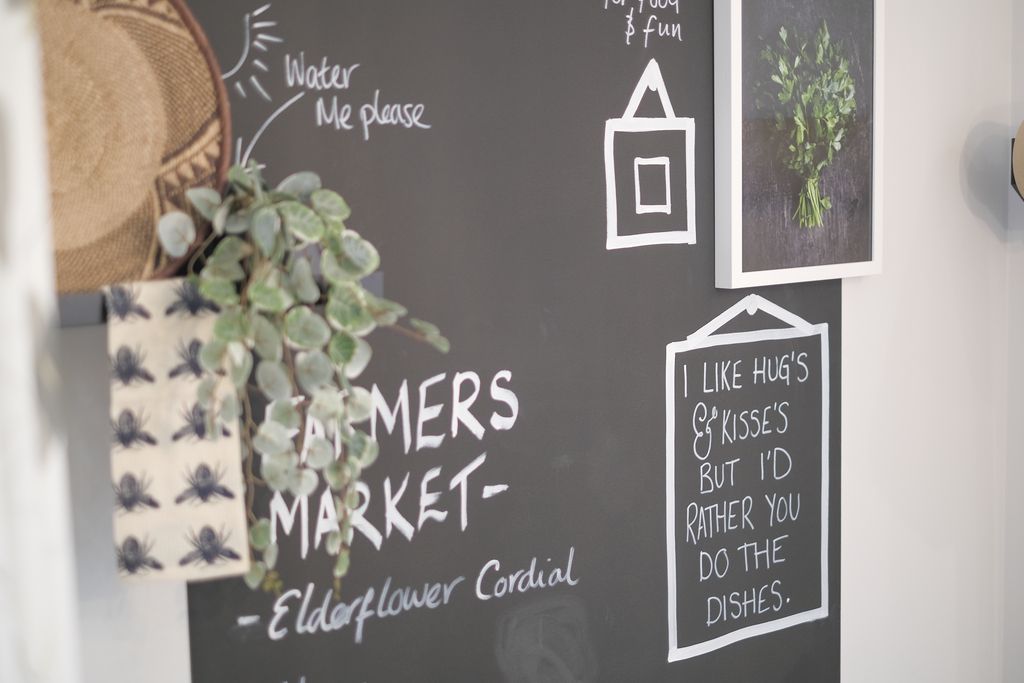 Water
Me please
& fun
FARMERS
MARKET-
- Elderflower Cordial
I LIKE HUG'S
& KISSE'S
BUT I'D
RATHER YOU
DO THE
DISHES.